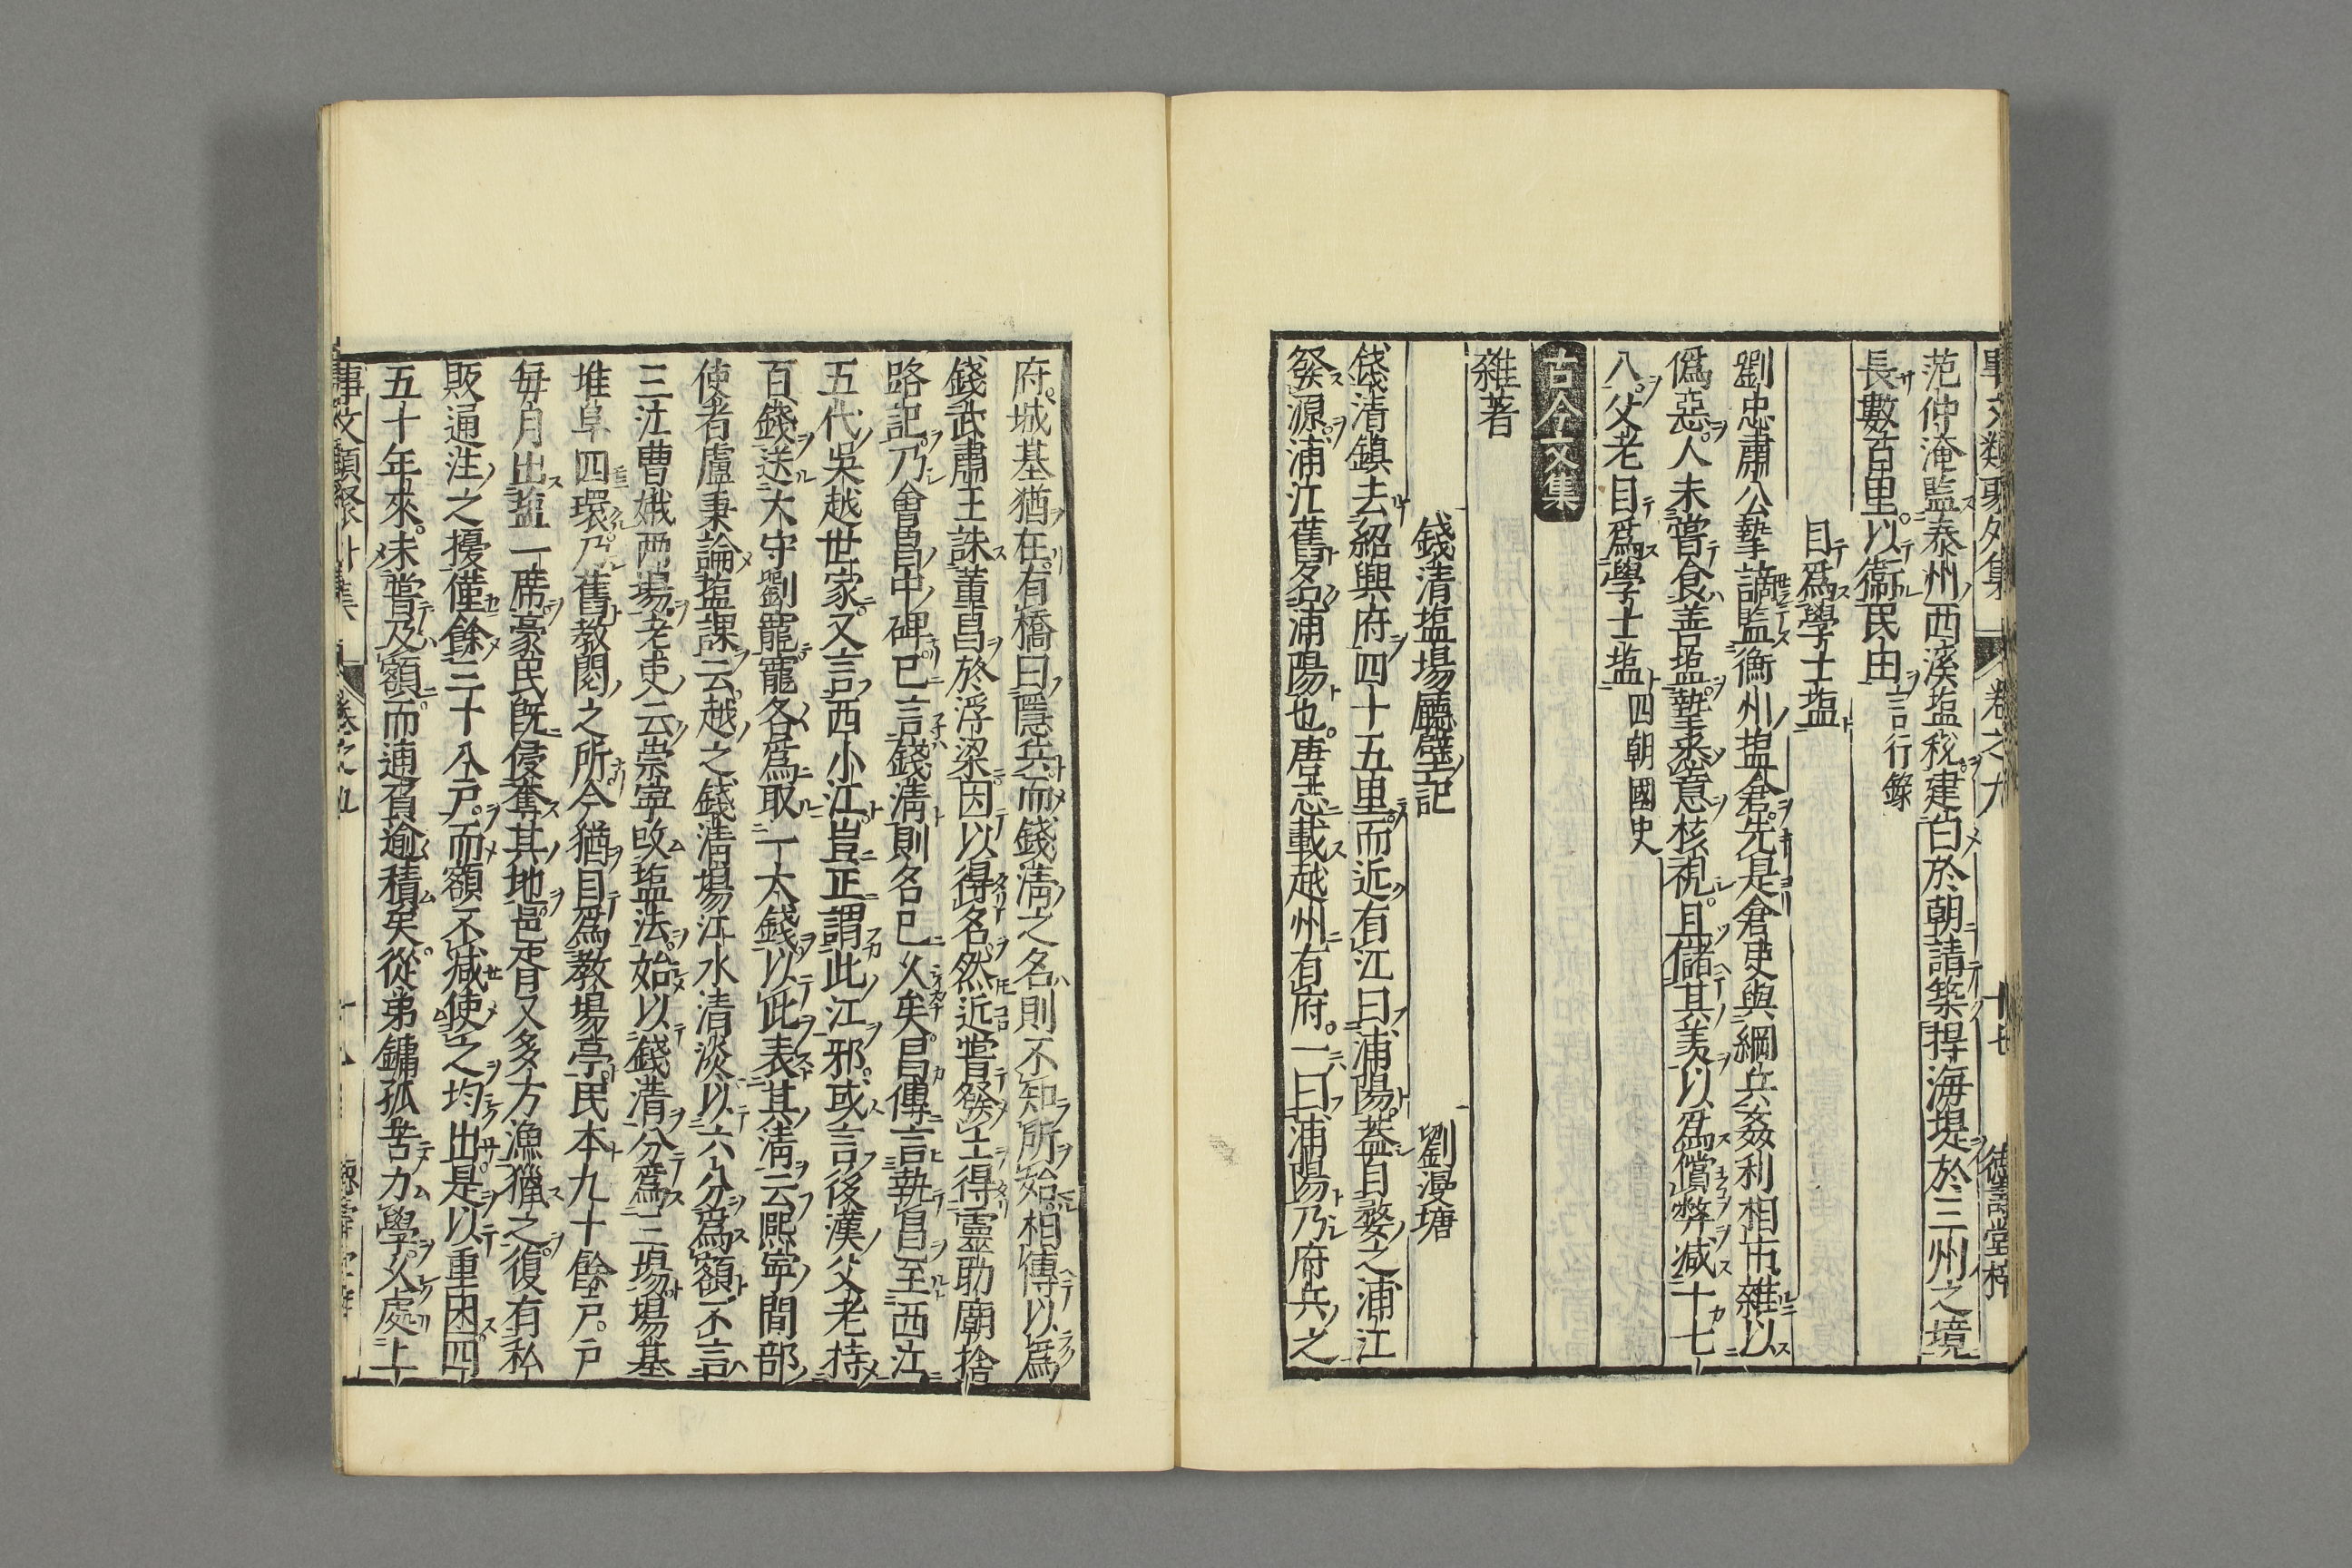 事文類聚外集 卷之九 十七 德壽堂梓
范仲淹監泰州西溪塩稅建白於朝請築捍海堤於三州之境
長數百里以衞民田 言行錄
目爲學士塩
劉忠肅公摯謫監衡州塩倉先是倉吏與綱兵姦利相市雜以
僞惡人未嘗食善塩摯悉意核視且儲其羡以爲償弊减十七
八父老目爲學士塩 四朝國史
古今文集
雜著
錢清塩場廳壁記 劉漫塘
錢清鎮去紹興府四十五里而近有江曰浦陽蓋自婺之浦江
發源浦江舊名浦陽也唐志載越州有府一曰浦陽乃府兵之
府城基猶在有橋曰隱兵而錢清之名則不知所始相傳以爲
錢武肅王誅董昌於浮梁因以得名然近嘗發土得靈助廟捨
路記乃會昌中碑已言錢清則名已久矣昌傳言執自至西江
五代吳越世家又言西小江豈正謂此江邪或言後漢父老持
百錢送太守劉寵寵各爲取一大錢以此表其清云熙寧間部
使者盧秉論塩課云越之錢清場江水清淡以六分爲額不言
三江曹娥兩場老吏云崇寧改塩法始以錢清分爲三場場基
堆阜四環乃舊教閱之所今猶目爲教場亭民本九十餘戶戶
每月出塩一席豪民旣侵奪其地邑胥又多方漁獵之復有私
販通注之擾僅餘三十八戶而額不減使之均出是以重困四
五十年來未嘗及額而逋負逾積矣從弟鏽孤苦力學久處上
事文類聚外集 卷之九 十八